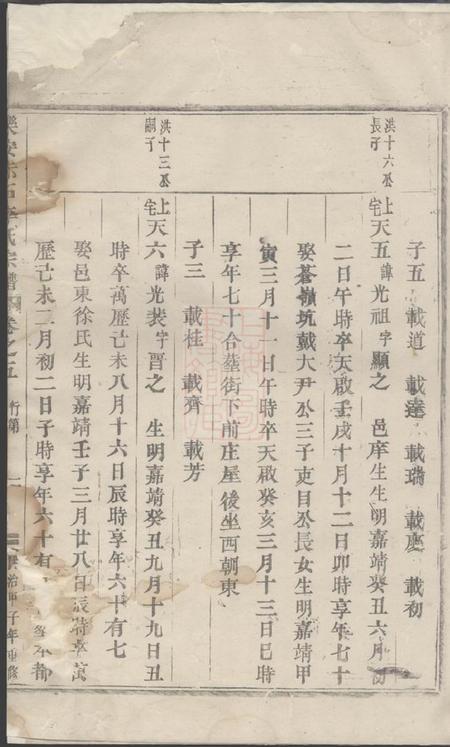 子五 載道 載達 載瑞 載慶 載初
洪十六公長子
上宅天五諱光祖字顯之 邑庠生生明嘉靖癸丑六月初
二日午時卒天啟壬戌十月十二日卯時享年七十
娶蒼嶺坑戴大尹公三子吏目公長女生明嘉靖甲
寅三月十一日午時卒天啟癸亥三月十三日巳時
享年七十合葬街下前庄屋後坐西朝東
子三 載桂 載齊 載芳
洪十三公嗣子
上宅天六諱光裴字晋之 生明嘉靖癸丑九月十九日丑
時卒萬歷己未八月十六日辰時享年六十有七
娶邑東徐氏生明嘉靖壬子三月廿八日辰時卒萬
歷己未二月初二日子時享年六十有
氏宗譜 卷之五 行第 治甲子年重修